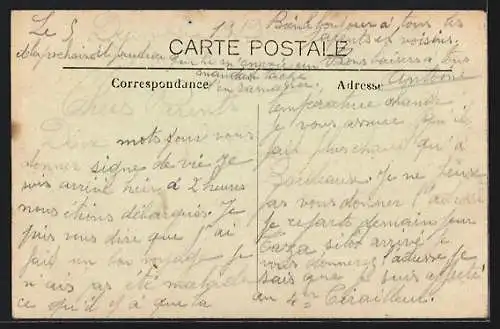 Le 5 Dec 19
Bien le bonjour à tous les
parents et voisins.
Antoine
CARTE POSTALE
Correspondance
Adresse
Chers Parents
Deux mots pour vous
donner signe de vie. Je
suis arrivé hier à 2 heures
nous étions débarqués. Je
puis vous dire que j'ai
fait un bon voyage je
n'ais pas été malade
ce qu'il y a que la
température change
je vous assure qu'il
fait plus chaud qu'à
Bordeaux. Je ne peux
pas vous donner l'adresse
je reparts demain pour
Caza sitôt arrivé je
vous donnerez l'adresse je
sais que je suis affecté
au 4e Tirailleur.